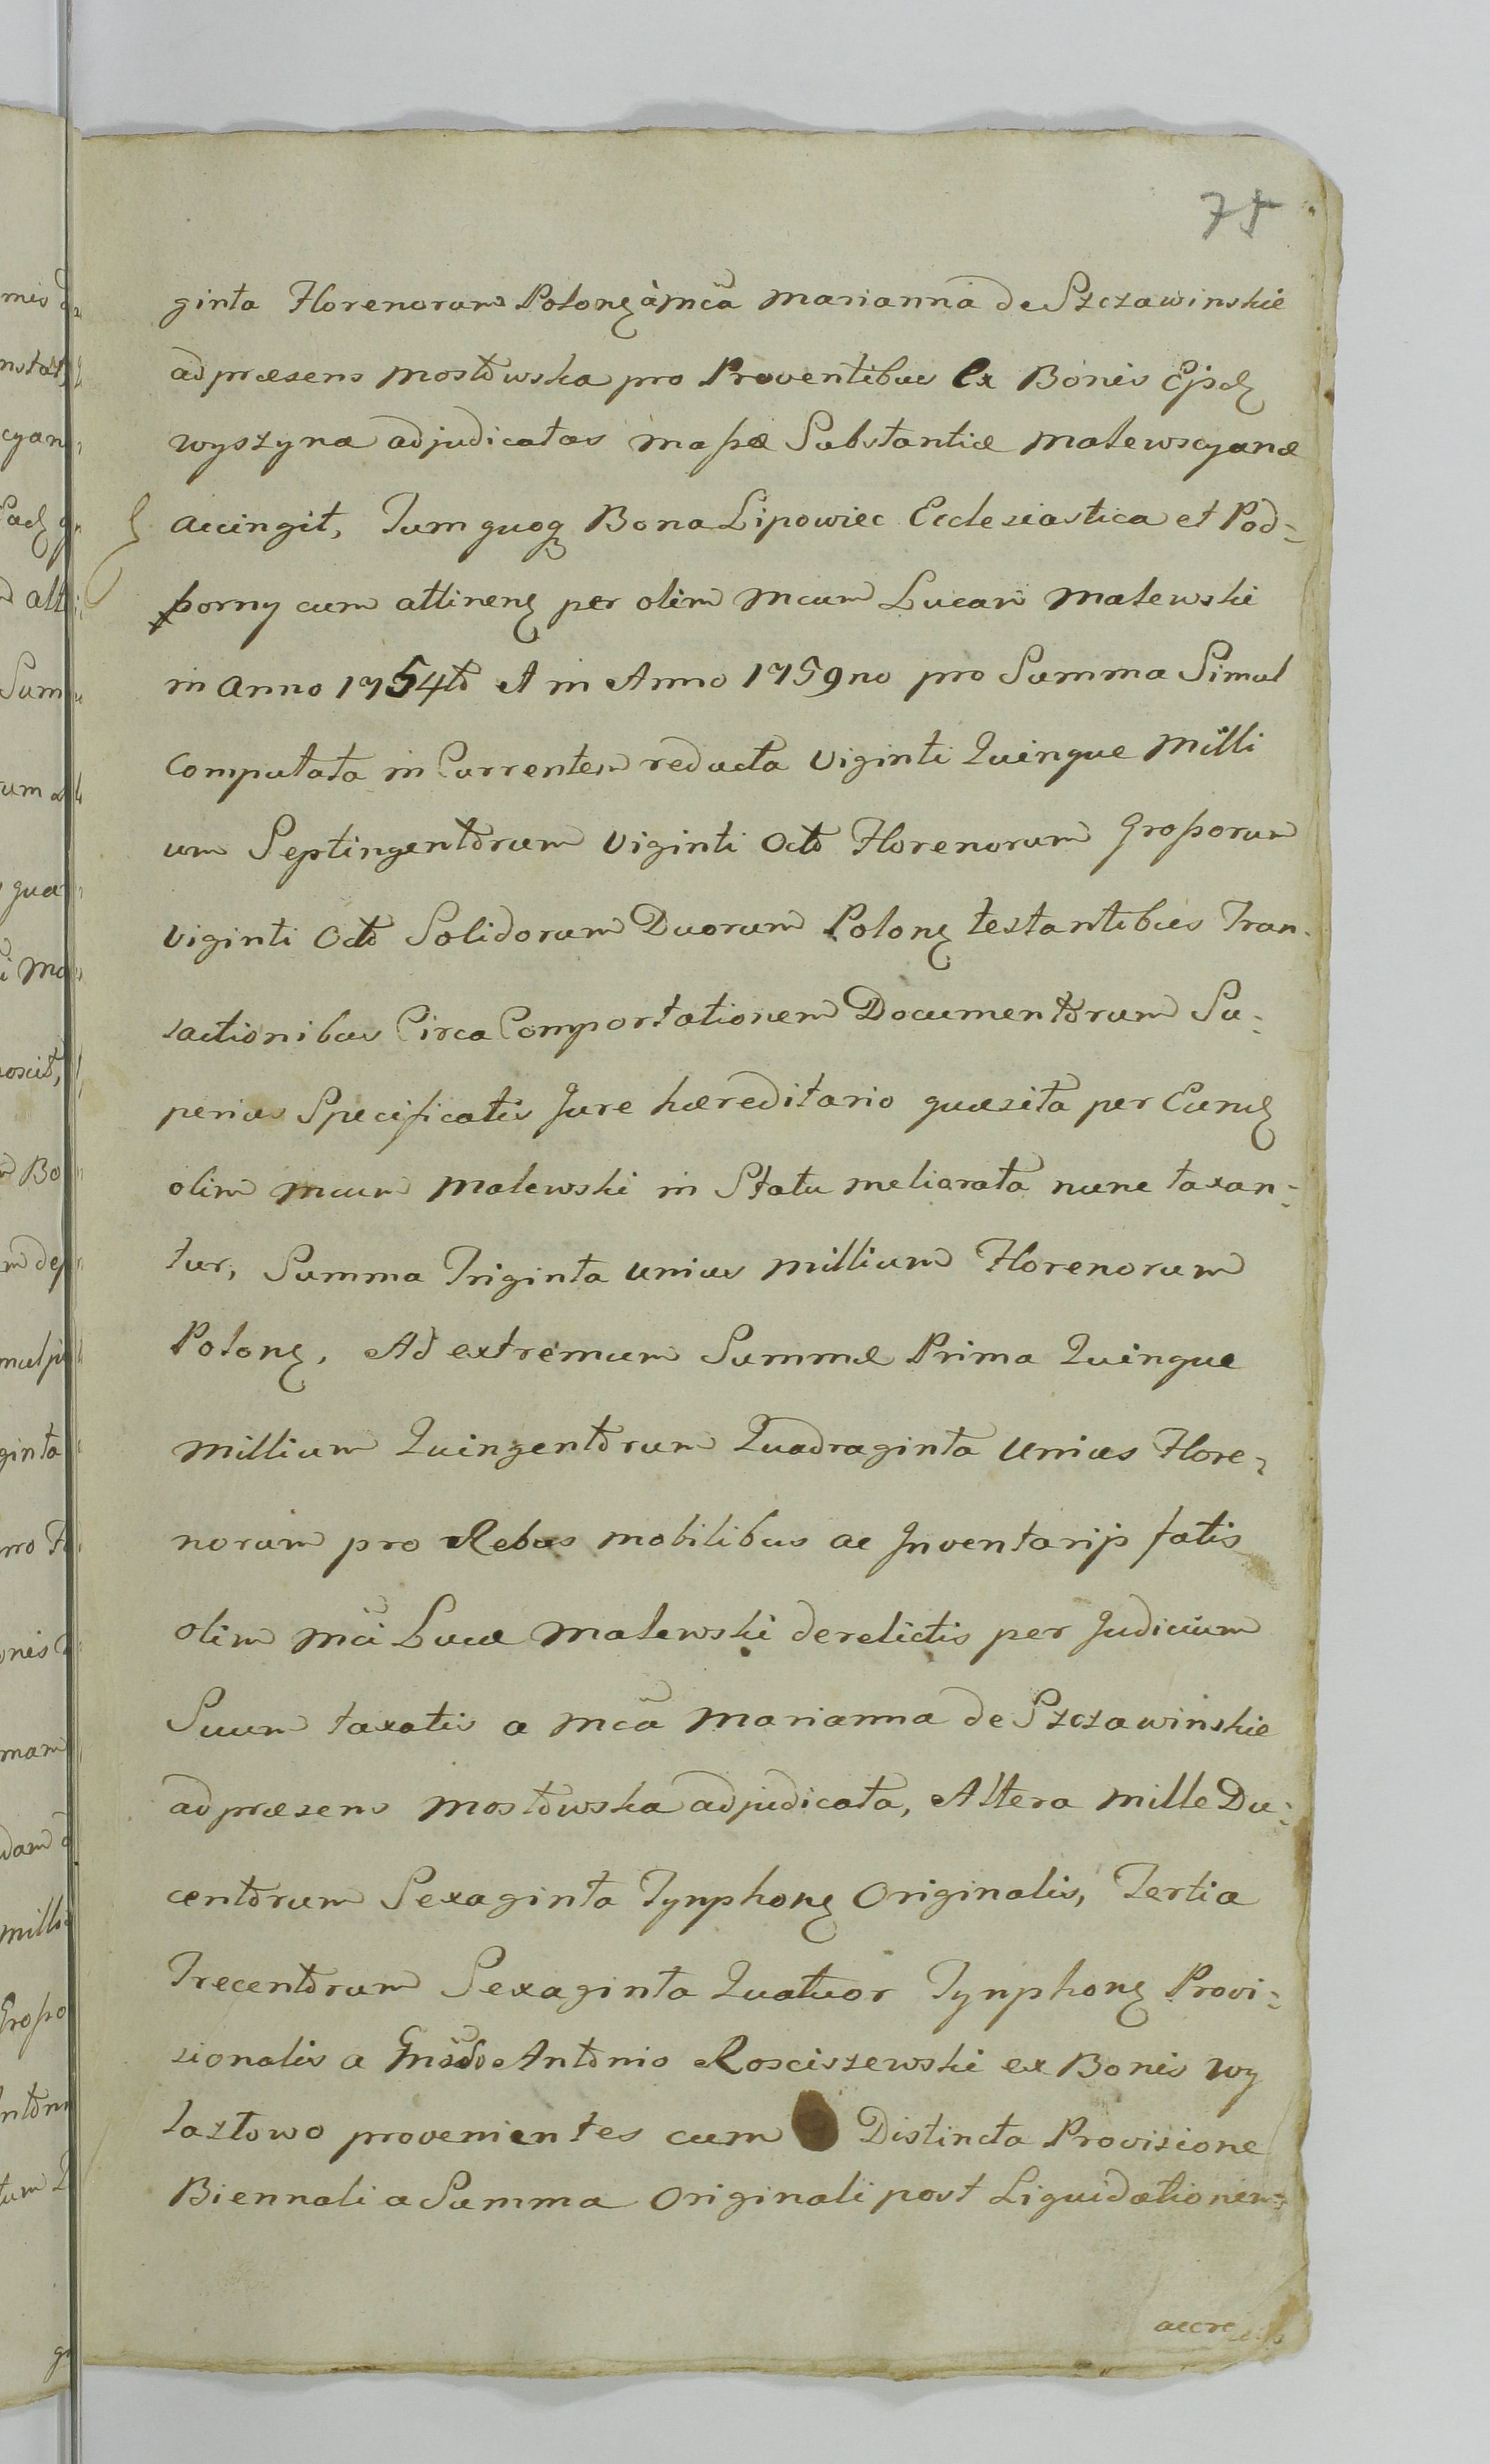 75
ginta Florenorum Polonꝫ à Mcã Marianna de Szczawinskie
ad præsens Mostowska pro Proventibus Ex Bonis Ejsdꝫ
Wyszyna adjudicatas Massæ Substantiæ Malewscyanæ
accingit, Tum quoqꝫ Bona Lipowiec Ecclesiastica et Pod=
borny cum attinenꝫ per olim Mcum Lucam Malewski
in Anno 1754to et in Anno 1759no pro Summa Simul
Computata in Currentem reducta Viginti Quinque Milli
um Septingentorum Viginti Octo Florenorum Grossorum
Viginti Octo Solidorum Duorum Polonꝫ testantibus Tran=
sactionibus Circa Comportationem Documentorum Su=
perius Specificatis Jure hæreditario quæsita per Eundꝫ
olim Mcum Malewski in Statu meliorata nunc taxan=
tur, Summa Triginta Unius Millium Florenorum
Polonꝫ, Ad extremum Summæ Prima Quinque
Millium Quingentorum Quadraginta Unius Flore=
norum pro Rebus mobilibus ac Inventarijs fatis
olim Mci Lucæ Malewski derelictis per Judicium
Suum taxatis a Mcã Marianna de Szczawinskie
ad præsens Mostowska adjudicata, Altera Mille Du=
centorum Sexaginta Tynphonꝫ Originalis, Tertia
Trecentorum Sexaginta Quatuor Tynphonꝫ Provi=
sionalis a Gnso Antonio Rosciszewski ex Bonis Wy
laztowo provenientes cum Distincta Provisione
Biennali a Summa Originali post Liquidationem